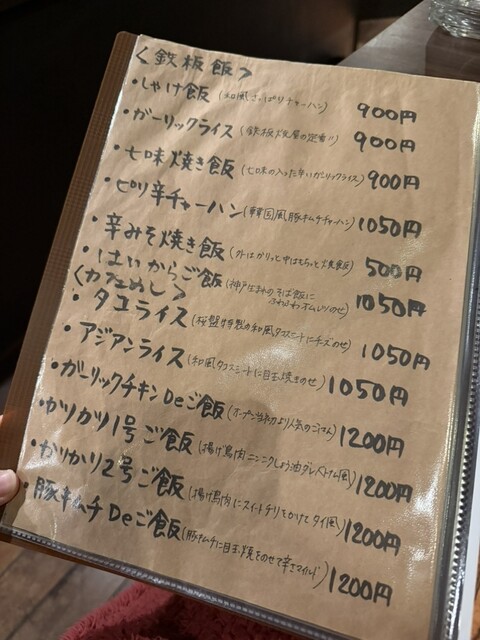 〈鉄板飯〉
・しゃけ飯(和風さっぱりチャーハン) 900円
・ガーリックライス(鉄板焼屋の定番!!) 900円
・七味焼き飯(七味の入った辛いガーリックライス) 900円
・ピリ辛チャーハン(韓国風豚キムチチャーハン) 1050円
・辛みそ焼き飯(外はカリッと中はもちっと焼飯) 500円
・はいからご飯(神戸のそば飯にふわふわオムレツのせ) 1050円
〈カフェめし〉
・タコライス(桜盤特製の和風タコスミートにチーズのせ) 1050円
・アジアンライス(和風タコスミートに目玉焼きのせ) 1050円
・ガーリックチキンDeご飯(オープン当初より人気のごはん) 1200円
・カリカリ1号ご飯(揚げ鶏肉ニンニクしょう油ダレベトナム風) 1200円
・カリカリ2号ご飯(揚げ鶏肉にスイートチリをかけてタイ風) 1200円
・豚キムチDeご飯(豚キムチに目玉焼をのせて辛さマイルド) 1200円